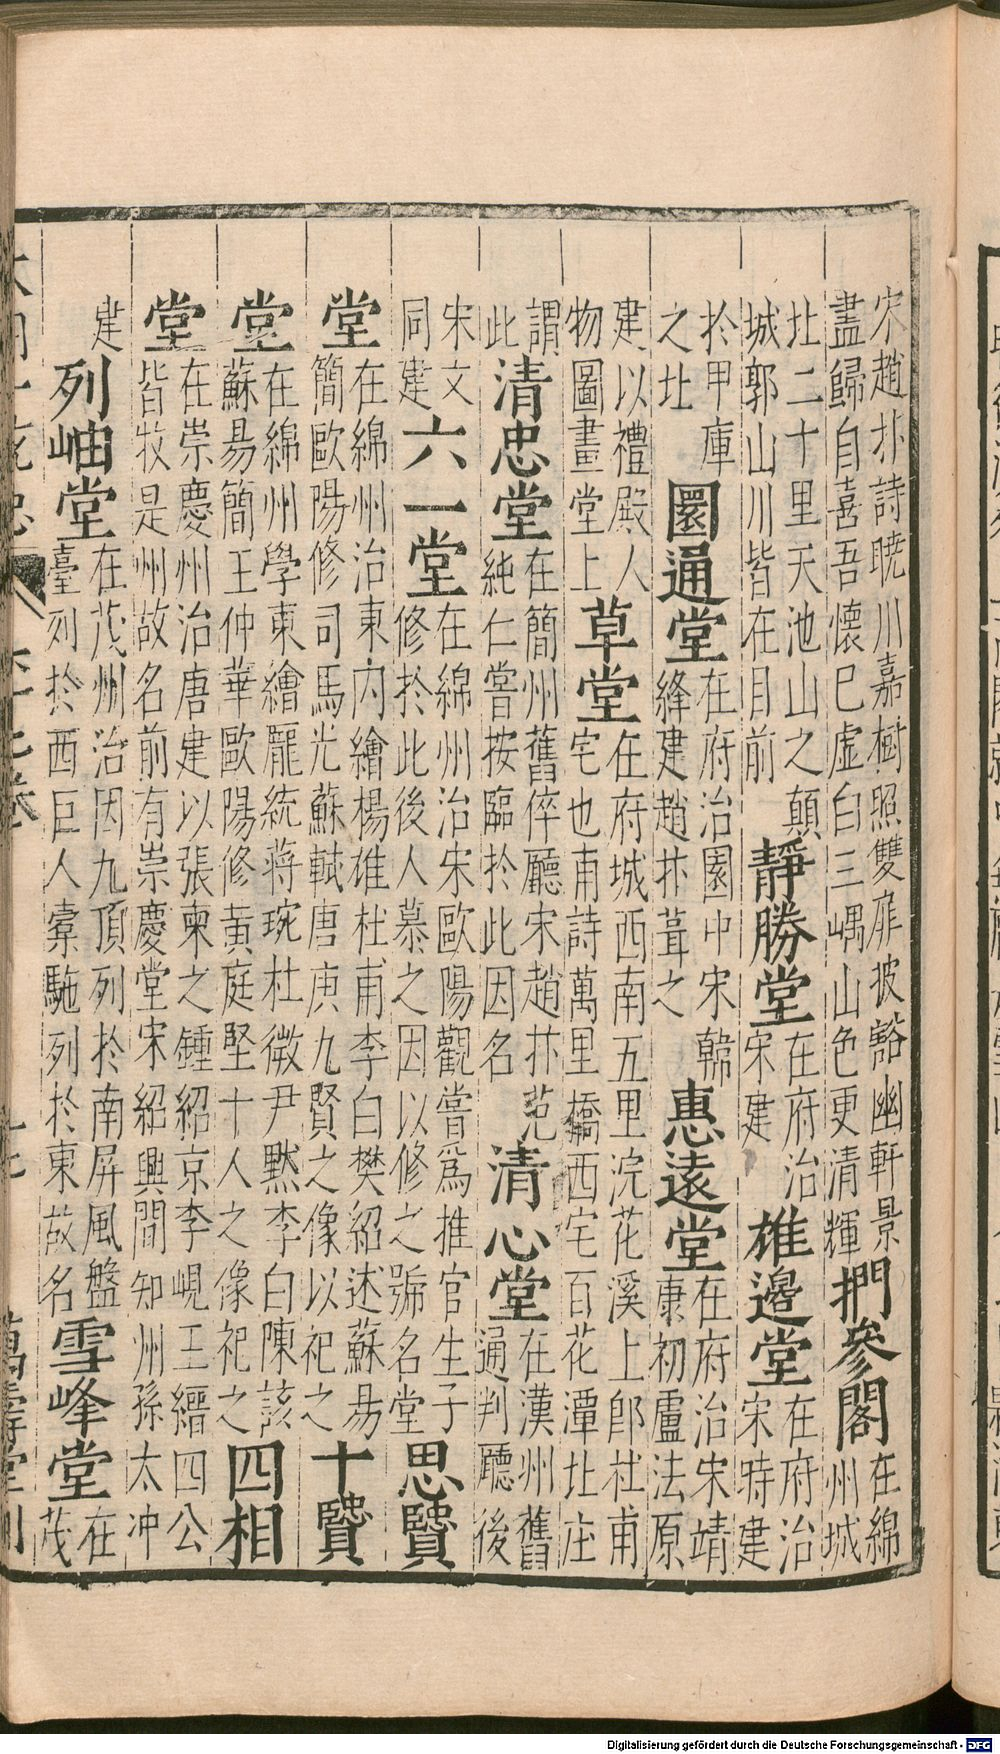 宋趙抃詩暁川嘉樹照雙扉披豁幽軒景盡歸自喜吾懷巳虚白三嵎山色更清輝捫參閣在綿州城
北二十里天池山之顛城郭山川皆在目前靜勝堂在府治宋建雄邊堂在府治宋時建
於甲庫之北圜通堂在府治園中宋韓絳建趙抃葺之惠遠堂在府治宋靖康初盧法原
建以禮殿人物圖畫堂上草堂在府城西南五里浣花溪上郎杜甫宅也甫詩萬里橋西宅百花潭北庄
謂此清忠堂在簡州舊倅廳宋趙抃范純仁嘗按臨於此因名清心堂在漢州舊通判廳後
宋文同建六一堂在綿州治宋歐陽觀嘗爲推官生子修於此後人慕之因以修之號名堂思賢
堂在綿州治東內繪楊雄杜甫李白樊紹述蘇易簡歐陽修司馬光蘇軾唐庚九賢之像以祀之十賢
堂在綿州學東繪龐統蔣琬杜微尹黙李白陳該蘇易簡王仲華歐陽修黄庭堅十人之像祀之四相
堂在崇慶州治唐建以張柬之鍾紹京李峴王縉四公皆牧是州故名前有崇慶堂宋紹興間知州孫太冲
建列岫堂在茂州治因九頂列於南屏風盤臺列於西巨人橐駞列於東故名雪峰堂在茂
萬壽堂刊
Digitalisierung gefördert durch die Deutsche Forschungsgemeinschaft - DFG